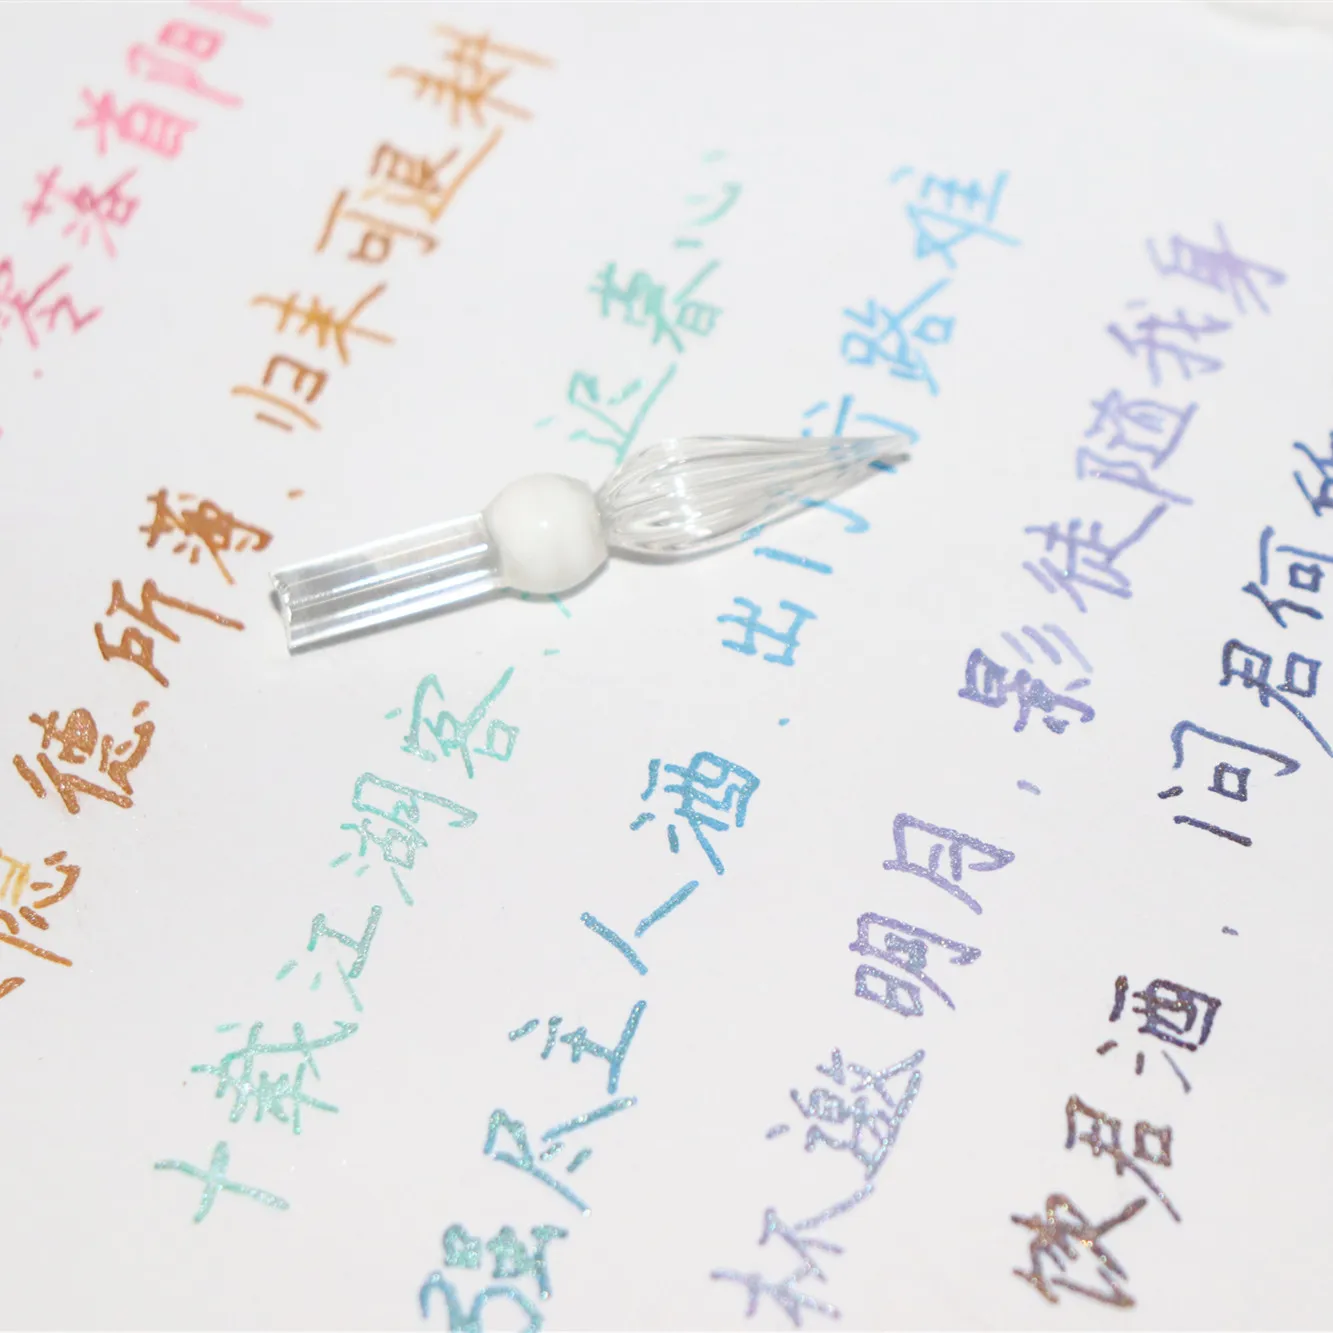 落首阳
德所薄，归来可退耕
十载江湖客，迟暮心
强尽主人酒，出门行路难
杯邀明月，影徒随我身
饮君酒，问君何